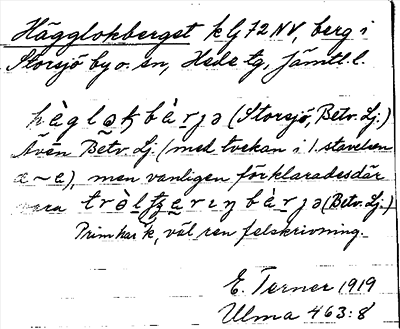 Hägglokberget k Gj 72 NV, berg i
Storsjö by o. sn, Hede tg, Jämtl. l.
(Storsjö, Betv. Lj.)
Även Betv. Lj. (med tvekan i 1. stavelsen
a ~ e), men vanligen förklarades där
vara (Betv. Lj.)
Prim har k, väl ren felskrivning.
E. Terner 1919
Ulma 463:8